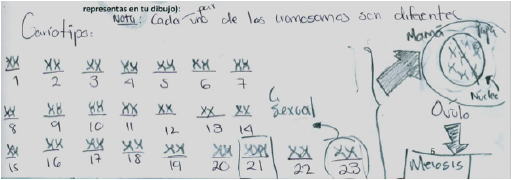 representas en tu dibujo):
Nota: Cada uno par de los cromosomas son diferentes
Cariotipo:
Mamá
Papá
1 2 3 4 5 6 7
Núcleo
C. sexual
Óvulo
8 9 10 11 12 13 14
15 16 17 18 19 20 21 22 23
Meiosis